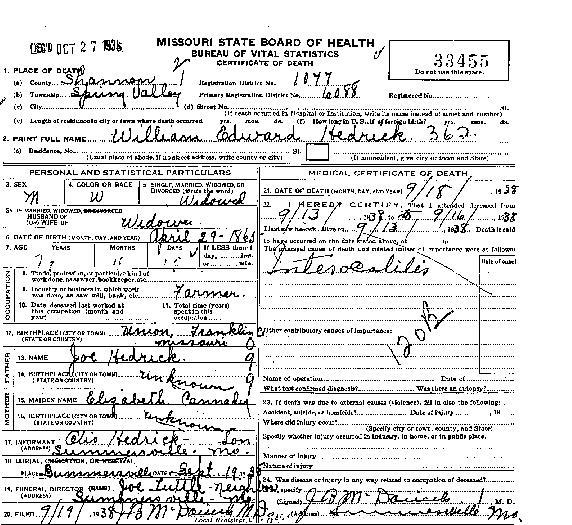 REC'D OCT 27 1938
MISSOURI STATE BOARD OF HEALTH
BUREAU OF VITAL STATISTICS
CERTIFICATE OF DEATH
33455
Do not use this space.
1. PLACE OF DEATH
(a) County Shannon Registration District No. 1077
(b) Township Spring Valley Primary Registration District No. 6088 Registered No.
(c) City (d) Street No. St.
(If death occurred in Hospital or Institution, write its name instead of street and number)
(e) Length of residence in city or town where death occurred yrs. mos. ds. (f) How long in U. S., if of foreign birth? yrs. mos. ds.
2. PRINT FULL NAME William Edward Hedrick 362
(a) Residence, No. St.
(Usual place of abode, if no street address, write county or city) (If nonresident, give city or town and State)
PERSONAL AND STATISTICAL PARTICULARS
3. SEX M
4. COLOR OR RACE W
5. SINGLE, MARRIED, WIDOWED, OR DIVORCED (write the word) Widowed
5a. IF MARRIED, WIDOWED, OR DIVORCED
HUSBAND OF
(OR) WIFE OF Widower
6. DATE OF BIRTH (MONTH, DAY, AND YEAR) April 29-1865
7. AGE YEARS MONTHS DAYS If LESS than 1 day, hrs. or min.
OCCUPATION
8. Trade, profession, or particular kind of work done, sawyer, bookkeeper, etc.
9. Industry or business in which work was done, as saw mill, bank, etc. Farmer.
10. Date deceased last worked at this occupation (month and year)
11. Total time (years) spent in this occupation
12. BIRTHPLACE (CITY OR TOWN) Union, Franklin Co
(STATE OR COUNTRY) Missouri 0
FATHER
13. NAME Joe Hedrick. 9
14. BIRTHPLACE (CITY OR TOWN) unknown 9
(STATE OR COUNTRY)
MOTHER
15. MAIDEN NAME Elizabeth
16. BIRTHPLACE (CITY OR TOWN) unknown
(STATE OR COUNTRY)
17. INFORMANT Hedrick - Son
(ADDRESS) Summersville - Mo.
18. BURIAL,
PLACE Summersville DATE Sept 19 1938
19. FUNERAL DIRECTOR Joe Tuttle - Neighbor
(ADDRESS) Summersville - Mo
20. FILED 9/19/ 1938
Local Registrar.
MEDICAL CERTIFICATE OF DEATH
21. DATE OF DEATH (MONTH, DAY, AND YEAR) 9/18/ 1938
22. I HEREBY CERTIFY, That I attended deceased from
9/13/ 1938 to 9/16/ 1938
I last saw h alive on 9/13/ 1938 Death is said
to have occurred on the date stated above, at
The principal cause of death and related causes of importance were as follows:
Date of onset
120B
Other contributory causes of importance:
Name of operation Date of
What test confirmed diagnosis? Was there an autopsy?
23. If death was due to external causes (violence), fill in also the following:
Accident, suicide, or homicide? Date of injury , 19
Where did injury occur?
(Specify city or town, county, and State)
Specify whether injury occurred in industry, in home, or in public place.
Manner of injury
Nature of injury
24. Was disease or injury in any way related to occupation of deceased?
If so, specify
(Signed) M. D.
(Address) Summersville Mo